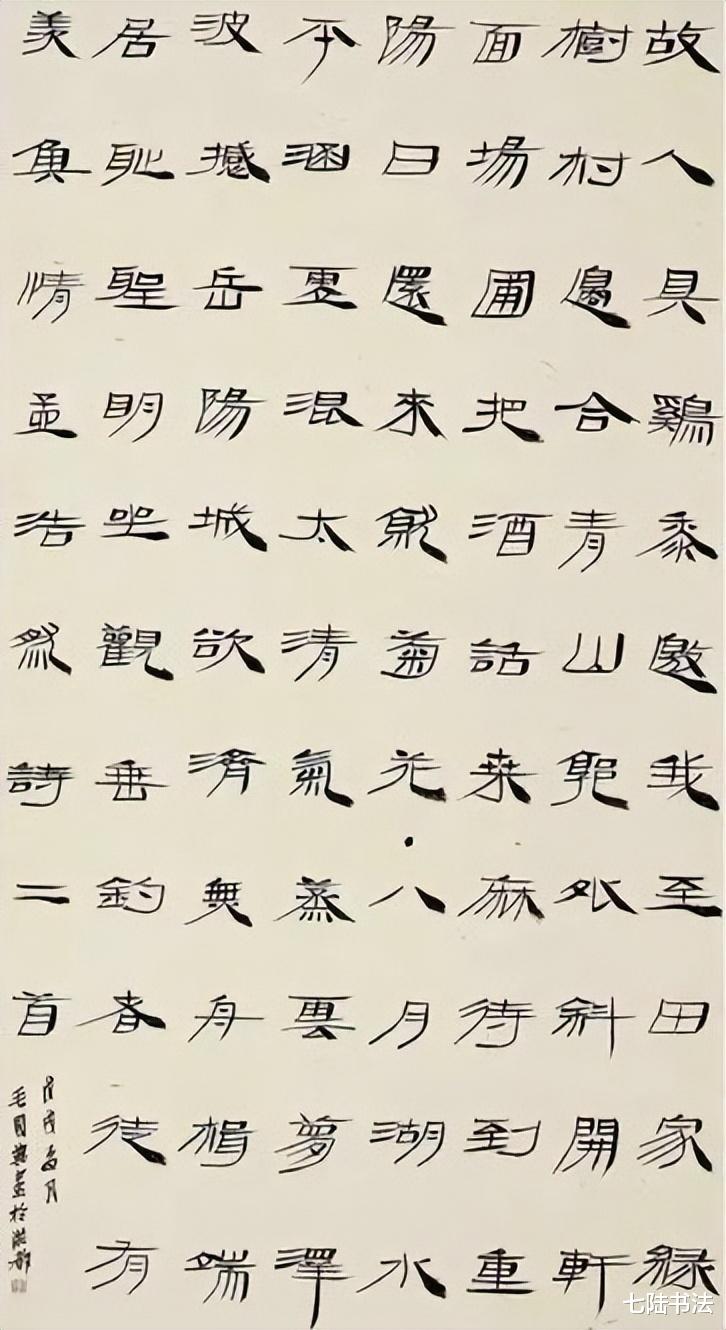 故人具鷄黍邀我至田家緑
樹村邊合青山郭外斜開軒
面場圃把酒話桒麻待到重
陽日還來就菊花八月湖水
平涵更混太清氣蒸雲夢澤
波撼岳陽城欲濟無舟楫端
居恥聖明坐觀垂釣者徒有
羨魚情孟浩然詩二首
戊戌夏月
毛國典書於洪都
七陆书法